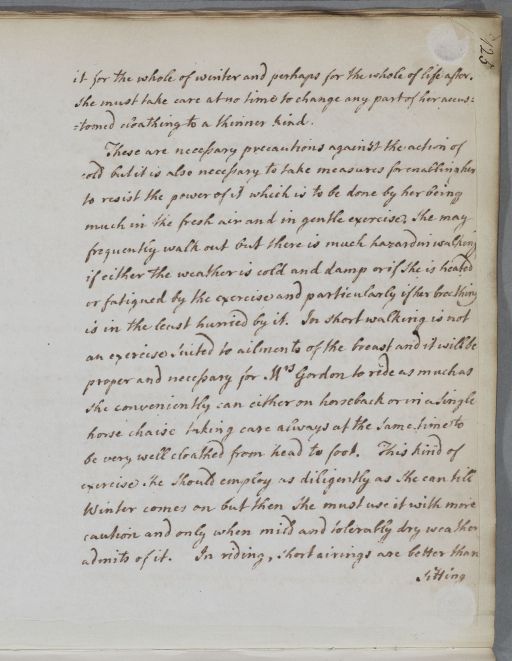 125
it for the whole of winter and perhaps for the whole of life after.
She must take care at no time to change any part of her accus:
:tomed cloathing to a thinner kind.
These are necessary precautions against the action of
cold but it is also necessary to take measures for enabling her
to resist the power of it which is to be done by her being
much in the fresh air and in gentle exercise, She may
frequently walk out but there is much hazard in walking
if either the weather is cold and damp or if She is heated
or fatigued by the exercise and particularly if her breathing
is in the least hurried by it. In short walking is not
an exercise suited to ailments of the breast and it will be
proper and necessary for Mrs Gordon to ride as much as
she conveniently can either on horseback or in a Single
horse chaise taking care always at the same time to
be very well cloathed from head to foot. This kind of
exercise She Should employ as diligently as She can till
Winter comes on but then She must use it with more
caution and only when mild and tolerably dry weather
admits of it. In riding, Short airings are better than
Sitting